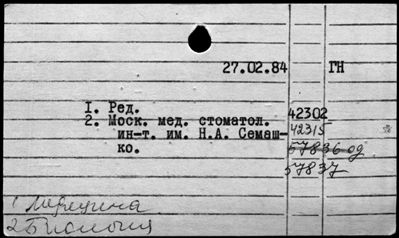 27.02.84 ГН
I. Ред. 42302
2. Моск. мед. стоматол. 42315
ин-т. им. Н.А. Семаш- 57836 од
ко. 57837
1 Медицина
2 Биология